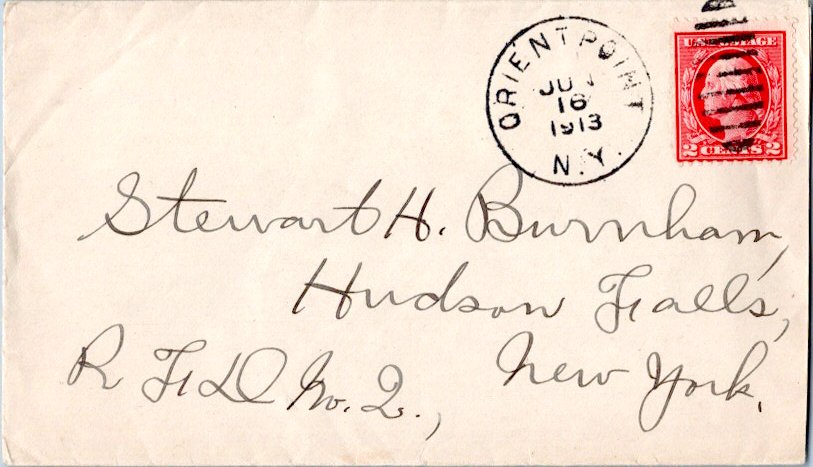 ORIENT POINT
JUN
16
1913
N.Y.
U.S. POSTAGE
2 CENTS 2
Stewart H. Burnham,
Hudson Falls,
R F D No. 2., New York.